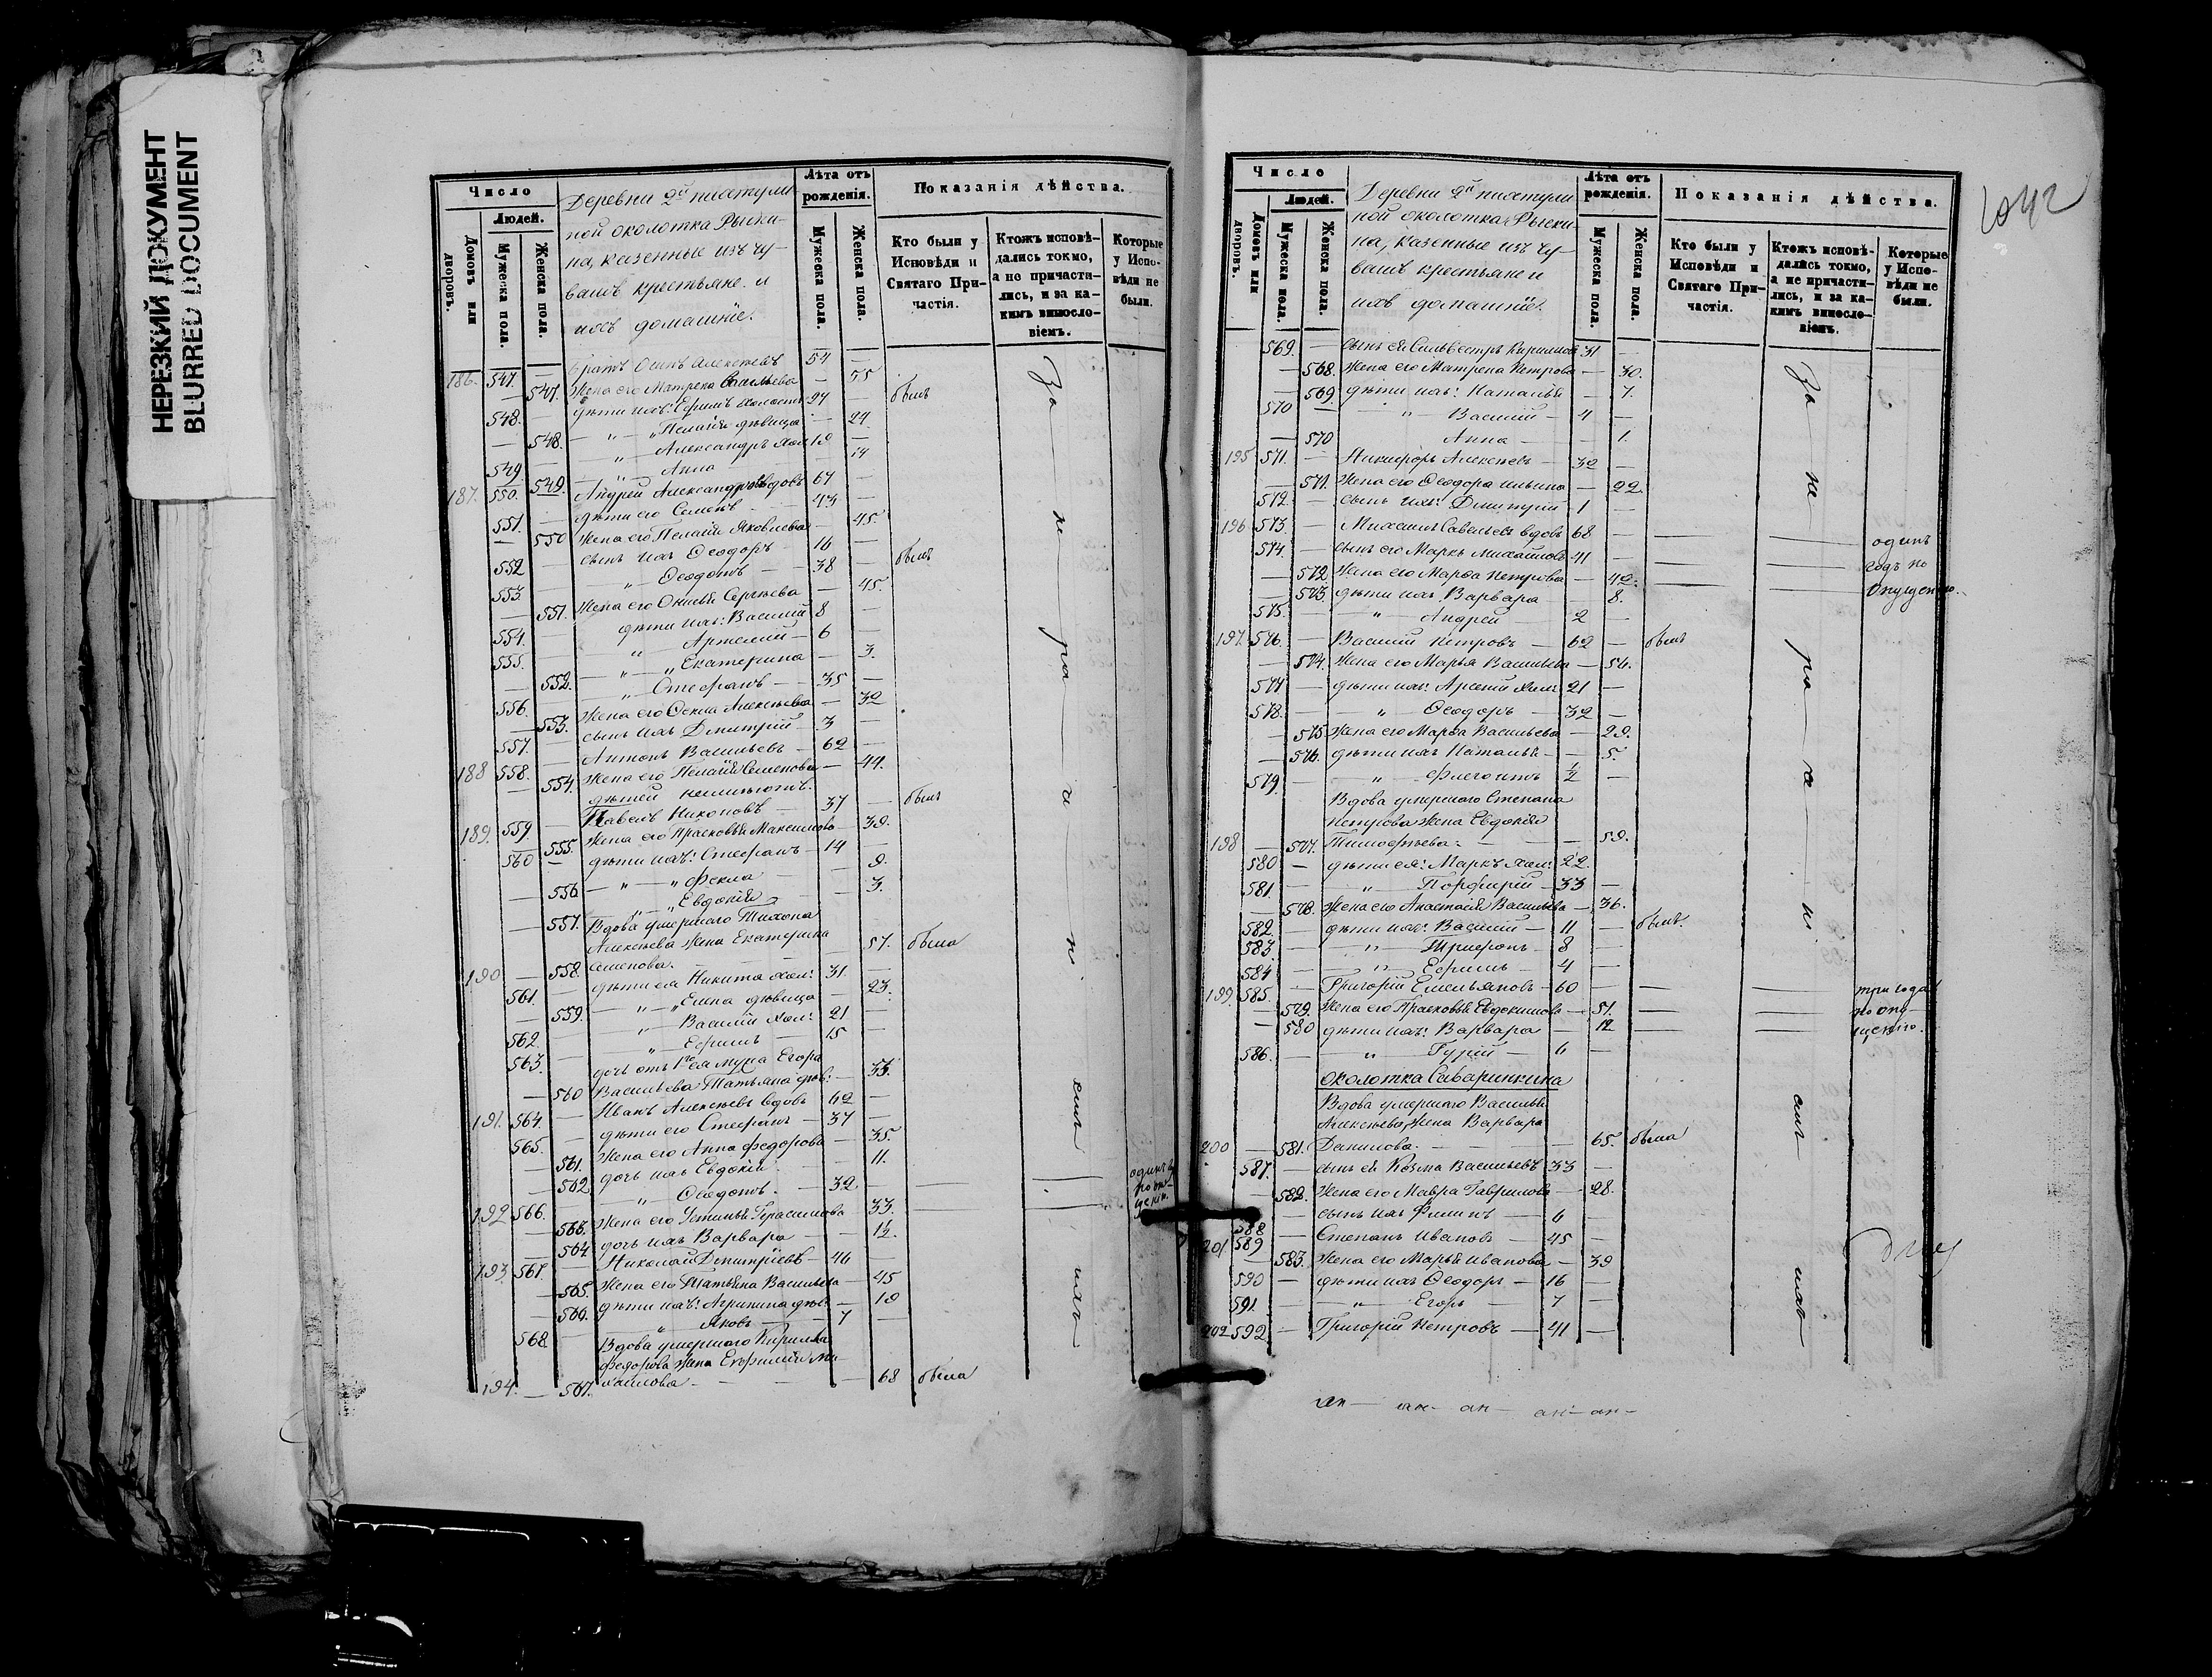 НЕРЕЗКИЙ ДОКУМЕНТ
BLURRED LOCUMENT
Число
Людей.
Домовъ или дворовъ.
Мужеска пола.
Женска пола.
Деревни 2й
ной околотка Рыски-
на, казенные изъ чу-
вашъ крестьяне и
ихъ домашніе.
Лѣта отъ рожденія.
Мужеска пола.
Женска пола.
Показанія дѣйства.
Кто были у Исповѣди и Святаго Причастія.
Ктожъ исповѣ-
дались токмо,
а не причасти-
лись, и за ка-
кимъ винословіемъ.
Которые у Исповѣди не были.
186. 547. — братъ Алексѣевъ 54 —
— 547. Жена его Матрена Васильева — 55
548. — дѣти ихъ: Ефимъ холостъ 27 — былъ
— 548. " Пелагія дѣвица — 24.
549. — " Александръ хол: 19 —
— 549. " Анна — 14
187. 550. — Андрей Александровъ вдовъ 67 —
551. — дѣти его Семенъ 43 —
— 550 Жена его Пелагія Яковлева — 45.
552 — сынъ ихъ Ѳеодоръ — 16 — былъ
553. — " Ѳеодотъ — 38 —
— 551. Жена его Сергѣева — 45.
554. — дѣти ихъ: Василій 8 —
555. — " Артемій — 6 —
— 552. " Екатерина — 3.
556. — " Стефанъ — 35 —
— 553. Жена его Ѳекла Алексѣева — 32
557. — сынъ ихъ Дмитрій — 3 —
188 558. — Антонъ Васильевъ — 62 —
— 554. Жена его Пелагія Семенова — 44.
дѣтей неимѣютъ.
189. 559. — Павелъ Никоновъ — 37 — былъ
— 555. Жена его Прасковья Максимова — 39.
560 — дѣти ихъ: Стефанъ — 14 —
— 556. " Фекла — 9.
— 557. " Евдокія — 3.
Вдова умершаго Тихона
Алексѣева жена Екатерина
190 — 558. Семенова. — 57. была
561. — дѣти ея Никита хол: 31 —
— 559. " Елена дѣвица — 23.
562. — " Василій хол: 21 —
563. — " Ефимъ — 15 —
дочь отъ 1го ея мужа Егора
— 560 Васильева Татьяна дѣв: — 35.
191. 564. — Иванъ Алексѣевъ вдовъ 62 —
565. — дѣти его Стефанъ — 37 —
— 561. Жена его Анна Федорова — 35.
— 562. дочь ихъ Евдокія — 11.
192 566. — " Ѳеодотъ. — 32 —
— 563. Жена его Устинья Герасимова — 33.
— 564 дочь ихъ Варвара — 1½.
193. 567. — Николай Дмитріевъ — 46 —
— 565. Жена его Татьяна Васильева — 45
— 566. дѣти ихъ: Агрипина дѣв: — 19
568. — " Яковъ — 7 —
Вдова умершаго Кирилла
Федорова жена Евфимія Ми-
194. — 567. хайлова — 68 была
За не ра
один
Число
Людей.
Домовъ или дворовъ.
Мужеска пола.
Женска пола.
Деревни 2й
ной околотка Рыски-
на, казенные изъ чу-
вашъ крестьяне и
ихъ домашніе.
Лѣта отъ рожденія.
Мужеска пола.
Женска пола.
Показанія дѣйства.
Кто были у Исповѣди и Святаго Причастія.
Ктожъ исповѣ-
дались токмо,
а не причасти-
лись, и за ка-
кимъ винословіемъ.
Которые у Исповѣди не были.
569. — сынъ ея Сильвестръ Кириловъ 31 —
— 568. Жена его Матрена Петрова — 30.
— 569. дѣти ихъ: Наталья — 7.
570 — " Василій — 4 —
— 570 Анна — 1.
195 571. — Никифоръ Алексѣевъ — 32 —
— 571. Жена его Ѳеодора Ильина — 22.
572. — сынъ ихъ: Дмитрій — 1 —
196 573. — Михаилъ Савельевъ вдовъ 68 — одинъ
574. — сынъ его Маркъ Михайловъ 41 — годъ по
— 572 Жена его Марѳа Петрова — 42. опущенію.
— 573. дѣти ихъ Варвара — 8.
575. — " Андрей — 2 —
197. 576. — Василій Петровъ — 62 — былъ
— 574. Жена его Марья Васильева — 54.
577 — дѣти ихъ: Арсеній хол: 21 —
578. — " Ѳеодоръ — 32 —
— 575 Жена его Марѳа Васильева — 29.
— 576. дѣти ихъ Наталья — 5.
579. — " Флегонтъ ½ —
Вдова умершаго Степана
Петрова жена Евдокія
198 — 577. Тимофѣева. — 59.
580 — дѣти ея: Маркъ хол: 22. —
581. — " Порфирій — 33 —
— 578. Жена его Анастасія Васильева — 36.
582. — дѣти ихъ: Василій — 11 — былъ.
583. — " Трифонъ — 8 —
584 — " Ефимъ — 4 —
199. 585. — Григорій Емельяновъ — 60 — три года
— 579. Жена его Прасковья Евдокимова — 51. по опу-
— 580 дѣти ихъ: Варвара — 12 щенію.
586. — " Гурій — 6 —
околотка Саваринкина
Вдова умершаго Василья
Алексѣева, жена Варвара
200 — 581. Данилова. — 65. была
587. — сынъ ея Козьма Васильевъ 33 —
— 582. Жена его Мавра Гаврилова — 28.
588 — сынъ ихъ Филипъ — 6 —
201 589 — Степанъ Ивановъ — 45 —
— 583. Жена его Марья Иванова — 39
590 — дѣти ихъ Ѳеодоръ — 16 —
591. — " Егоръ — 7 —
202 592 — Григорій Петровъ — 41 —
За не ра